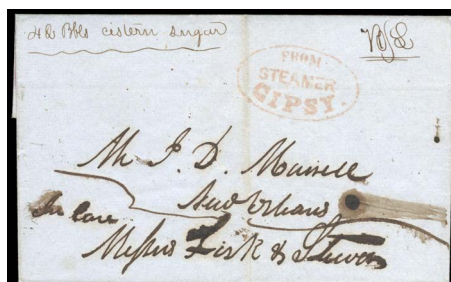 Bbls cistern sugar
FROM
STEAMER
GIPSY.
Mr J. D. Murrell
New Orleans
In care
Messrs Fisk &